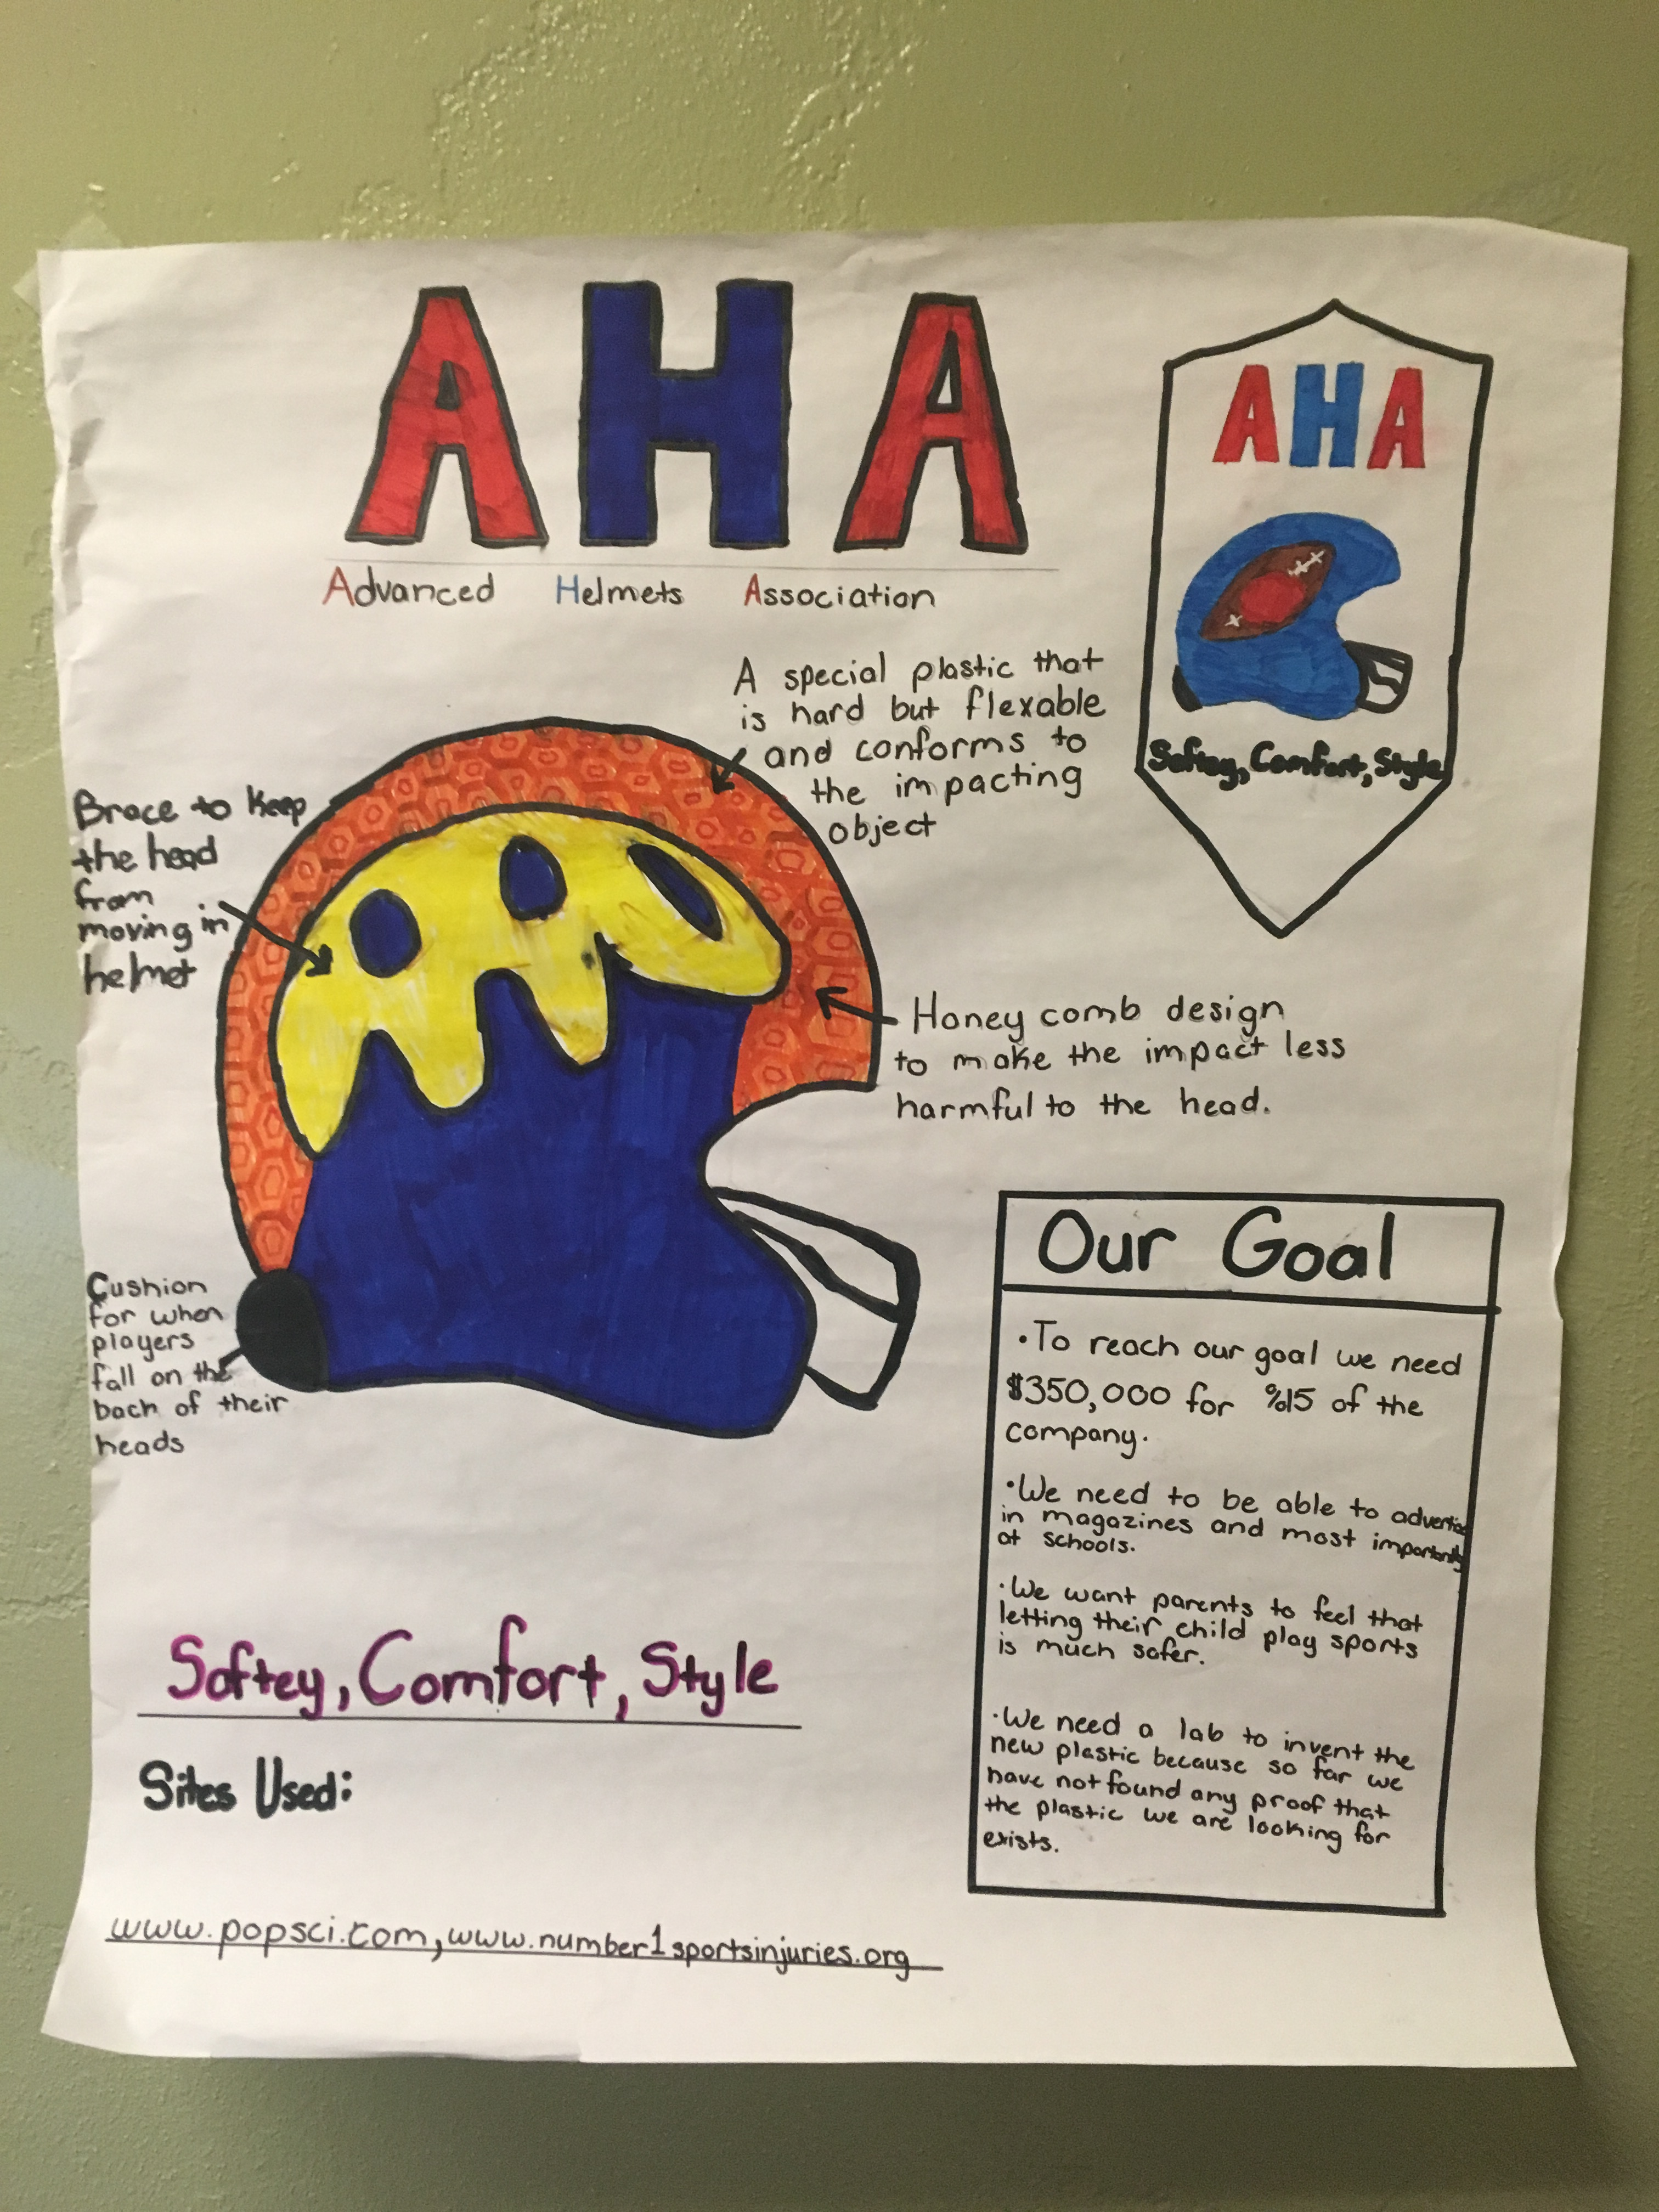 AHA
Advanced Helmets Association
AHA
Saftey, Comfort, Style
A special plastic that
is hard but flexable
and conforms to
the impacting
object
Brace to keep
the head
from
moving in
helmet
Honey comb design
to make the impact less
harmful to the head.
Cushion
for when
players
fall on the
back of their
heads
Our Goal
•To reach our goal we need
$350,000 for %15 of the
company.
•We need to be able to advertise
in magazines and most importantly
at schools.
•We want parents to feel that
letting their child play sports
is much safer.
•We need a lab to invent the
new plastic because so far we
have not found any proof that
the plastic we are looking for
exists.
Saftey, Comfort, Style
Sites Used:
www.popsci.com, www.number1sportsinjuries.org